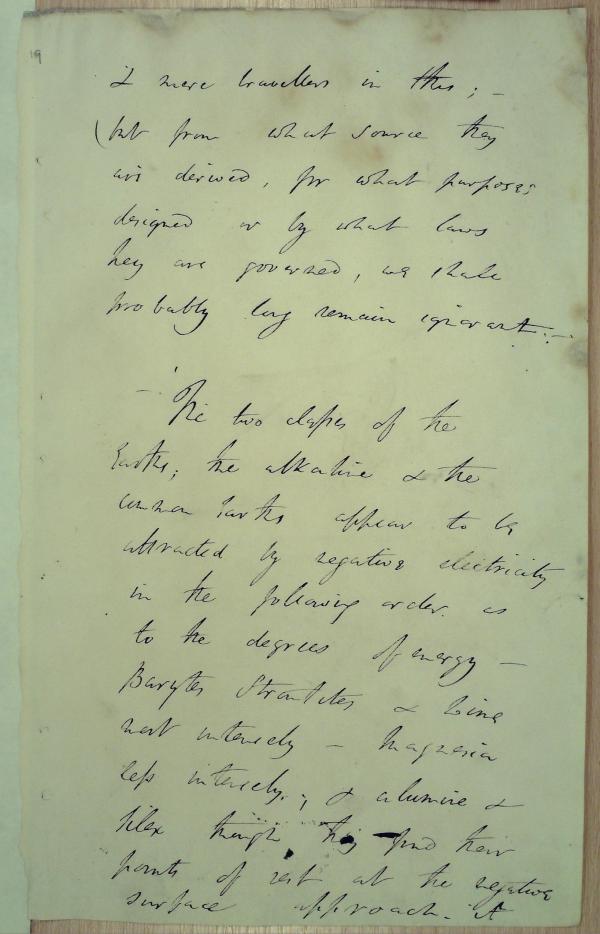 19
& mere travellers in this; –
(but from what source they
are derived, for what purposes
designed or by what laws
they are governed, we shall
probably long remain ignorant. –
– The two classes of the
Earths; the alkaline & the
common Earths appear to be
attracted by negative electricity
in the following order. as
to the degrees of energy –
Barytes Strontites & Lime
most intensely – Magnesia
less intensely.; & alumine &
silex though they find their
points of rest at the negative
surface approach. it